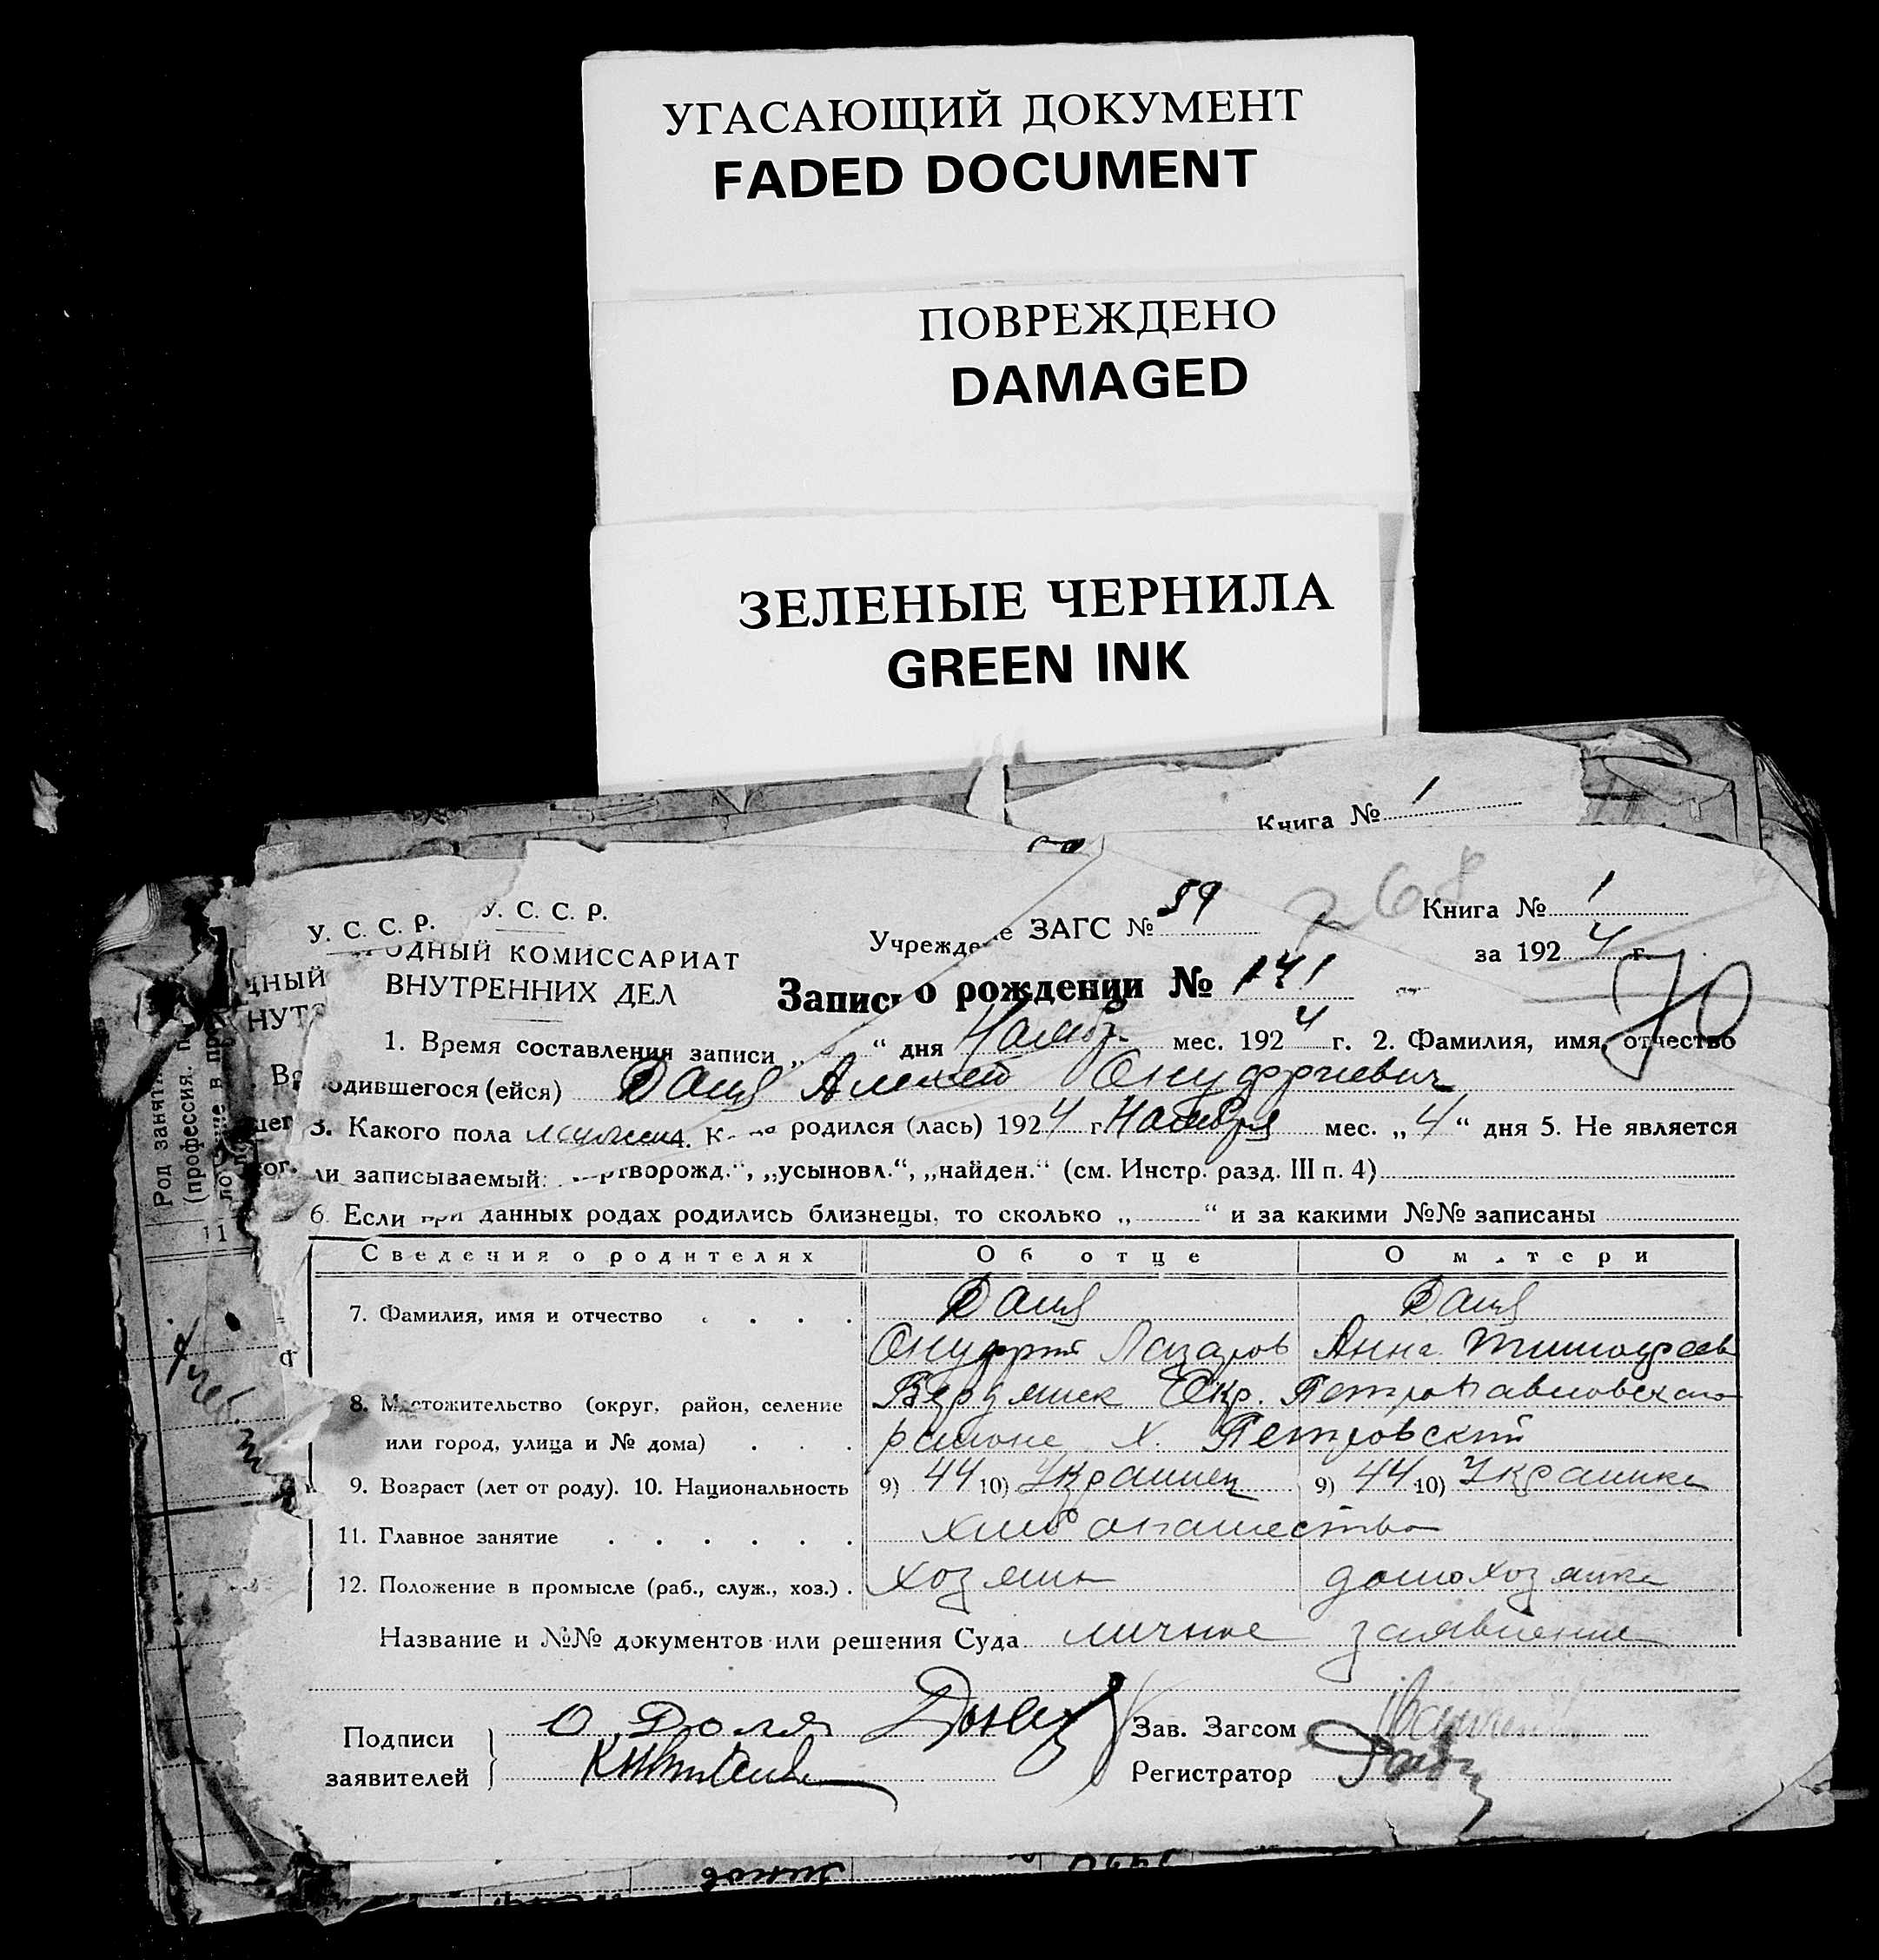 УГАСАЮЩИЙ ДОКУМЕНТ
FADED DOCUMENT
ПОВРЕЖДЕНО
DAMAGED
ЗЕЛЕНЫЕ ЧЕРНИЛА
GREEN INK
Книга № 1
У. С. С. Р. У. С. С. Р.
ОДНЫЙ КОМИССАРИАТ
ВНУТРЕННИХ ДЕЛ
Учрежде е ЗАГС № 59
268
Книга № 1
за 192 4 г.
70
Запись о рождении № 141
1. Время составления записи „ “ дня Ноябр. мес. 192 4 г. 2. Фамилия, имя, отчество
одившегося (ейся) Даля Алексей Онуфриевич
3. Какого пола мужск. родился (лась) 192 4 г. Ноября мес. „ 4 “ дня 5. Не является
ли записываемый: ртворожд.“, „усыновл.“, „найден.“ (см. Инстр. разд. III п. 4)
6. Если при данных родах родились близнецы, то сколько „ “ и за какими №№ записаны
Сведения о родителях Об отце О м тери
7. Фамилия, имя и отчество Даля Даля
Онуфрий Лазаров Анна Тимофеев
8. М стожительство (округ, район, селение Бердянск Окр. Петропавловского
или город, улица и № дома) района х. Петровский
9. Возраст (лет от роду). 10. Национальность 9) 44 10) Украинец 9) 44 10) Украинка
11. Главное занятие хлебопашество
12. Положение в промысле (раб., служ., хоз.) хозяин домохозяйка
Название и №№ документов или решения Суда личное заявление
Подписи О Доля Зав. Загсом
заявителей Регистратор
Род занят
(профессия.
11